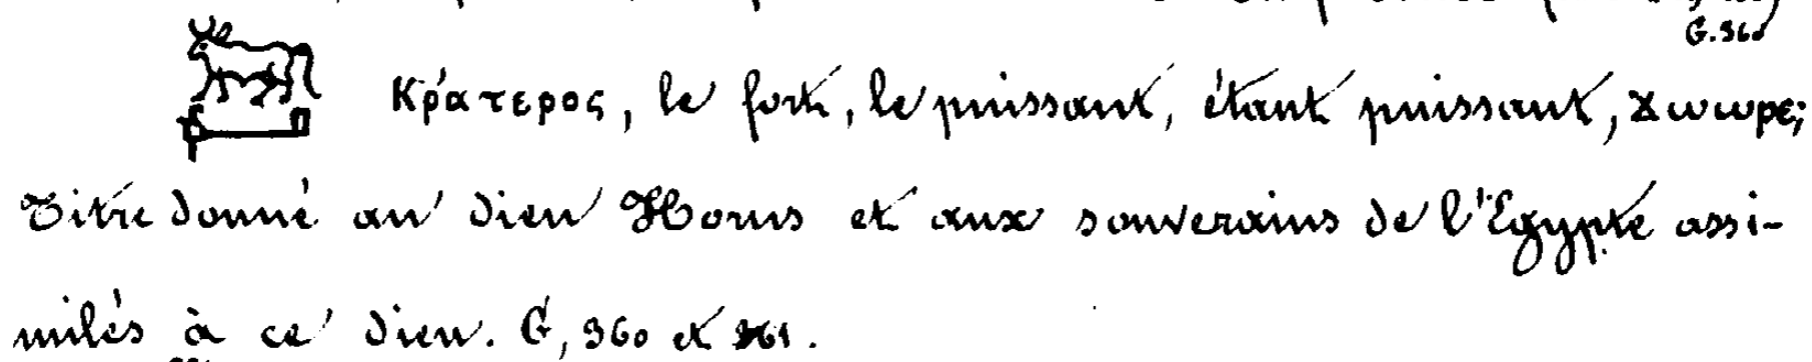 G. 360
Κράτερος, le fort, le puissant, étant puissant, ϫⲱⲱⲣⲉ;
Titre donné au dieu Horus et aux souverains de l'Egypte assi-
milés à ce dieu. G, 360 et 361.